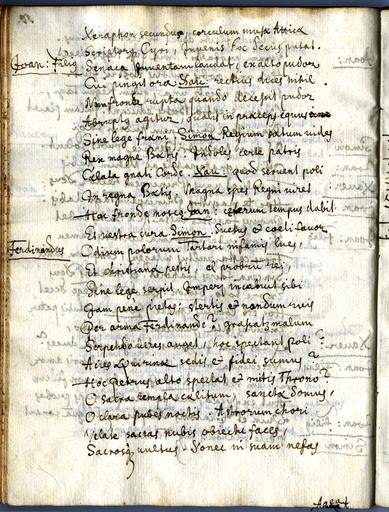 Xenaphon secundus, corculum musæ Attica
Scriptorq Cyri, Juvenis hoc decus putat.
Joan: Filiq Seneca Juventam laudat, ex alto pudor
Cui pingit ora Xau: rectius dices nihil.
Nam fronte rupta quando decessit pudor
Abruptq agitur, qualis in præceps equus
Sine lege fræni. Simon Regium vatum vides
Rex magne Bætis. Indoles certe patris
Cælata gnati Corde. Xau: quod servent poli
In regna Bætis. Magna spes Regni vires
Hac fronde notes Joan: cæterum tempus dabit
Et vestra cura Simon. Suetus et cœli favor
Ferdinandus Odium polorum Tartari infamis lues,
Et christiana pestis, et probrum rei,
Sine lege serpit. Imperq incubuit sibi
Jam pene pietas: stertis et nondum vires
Por arma Ferdinande? grassatq malum
Serpendo vires auget, hoc spectant poli?
Acies Quirinæ sedis et fidei sumus?
Hoc Petrus alto spectat et mitis Throno?
O sacra templa cælitum, sancta domus,
O clara pubes noctis. Astrorum chori
Velate sacras nubis obiectu faces
Sacrosq vultus. Donec in suam nefas